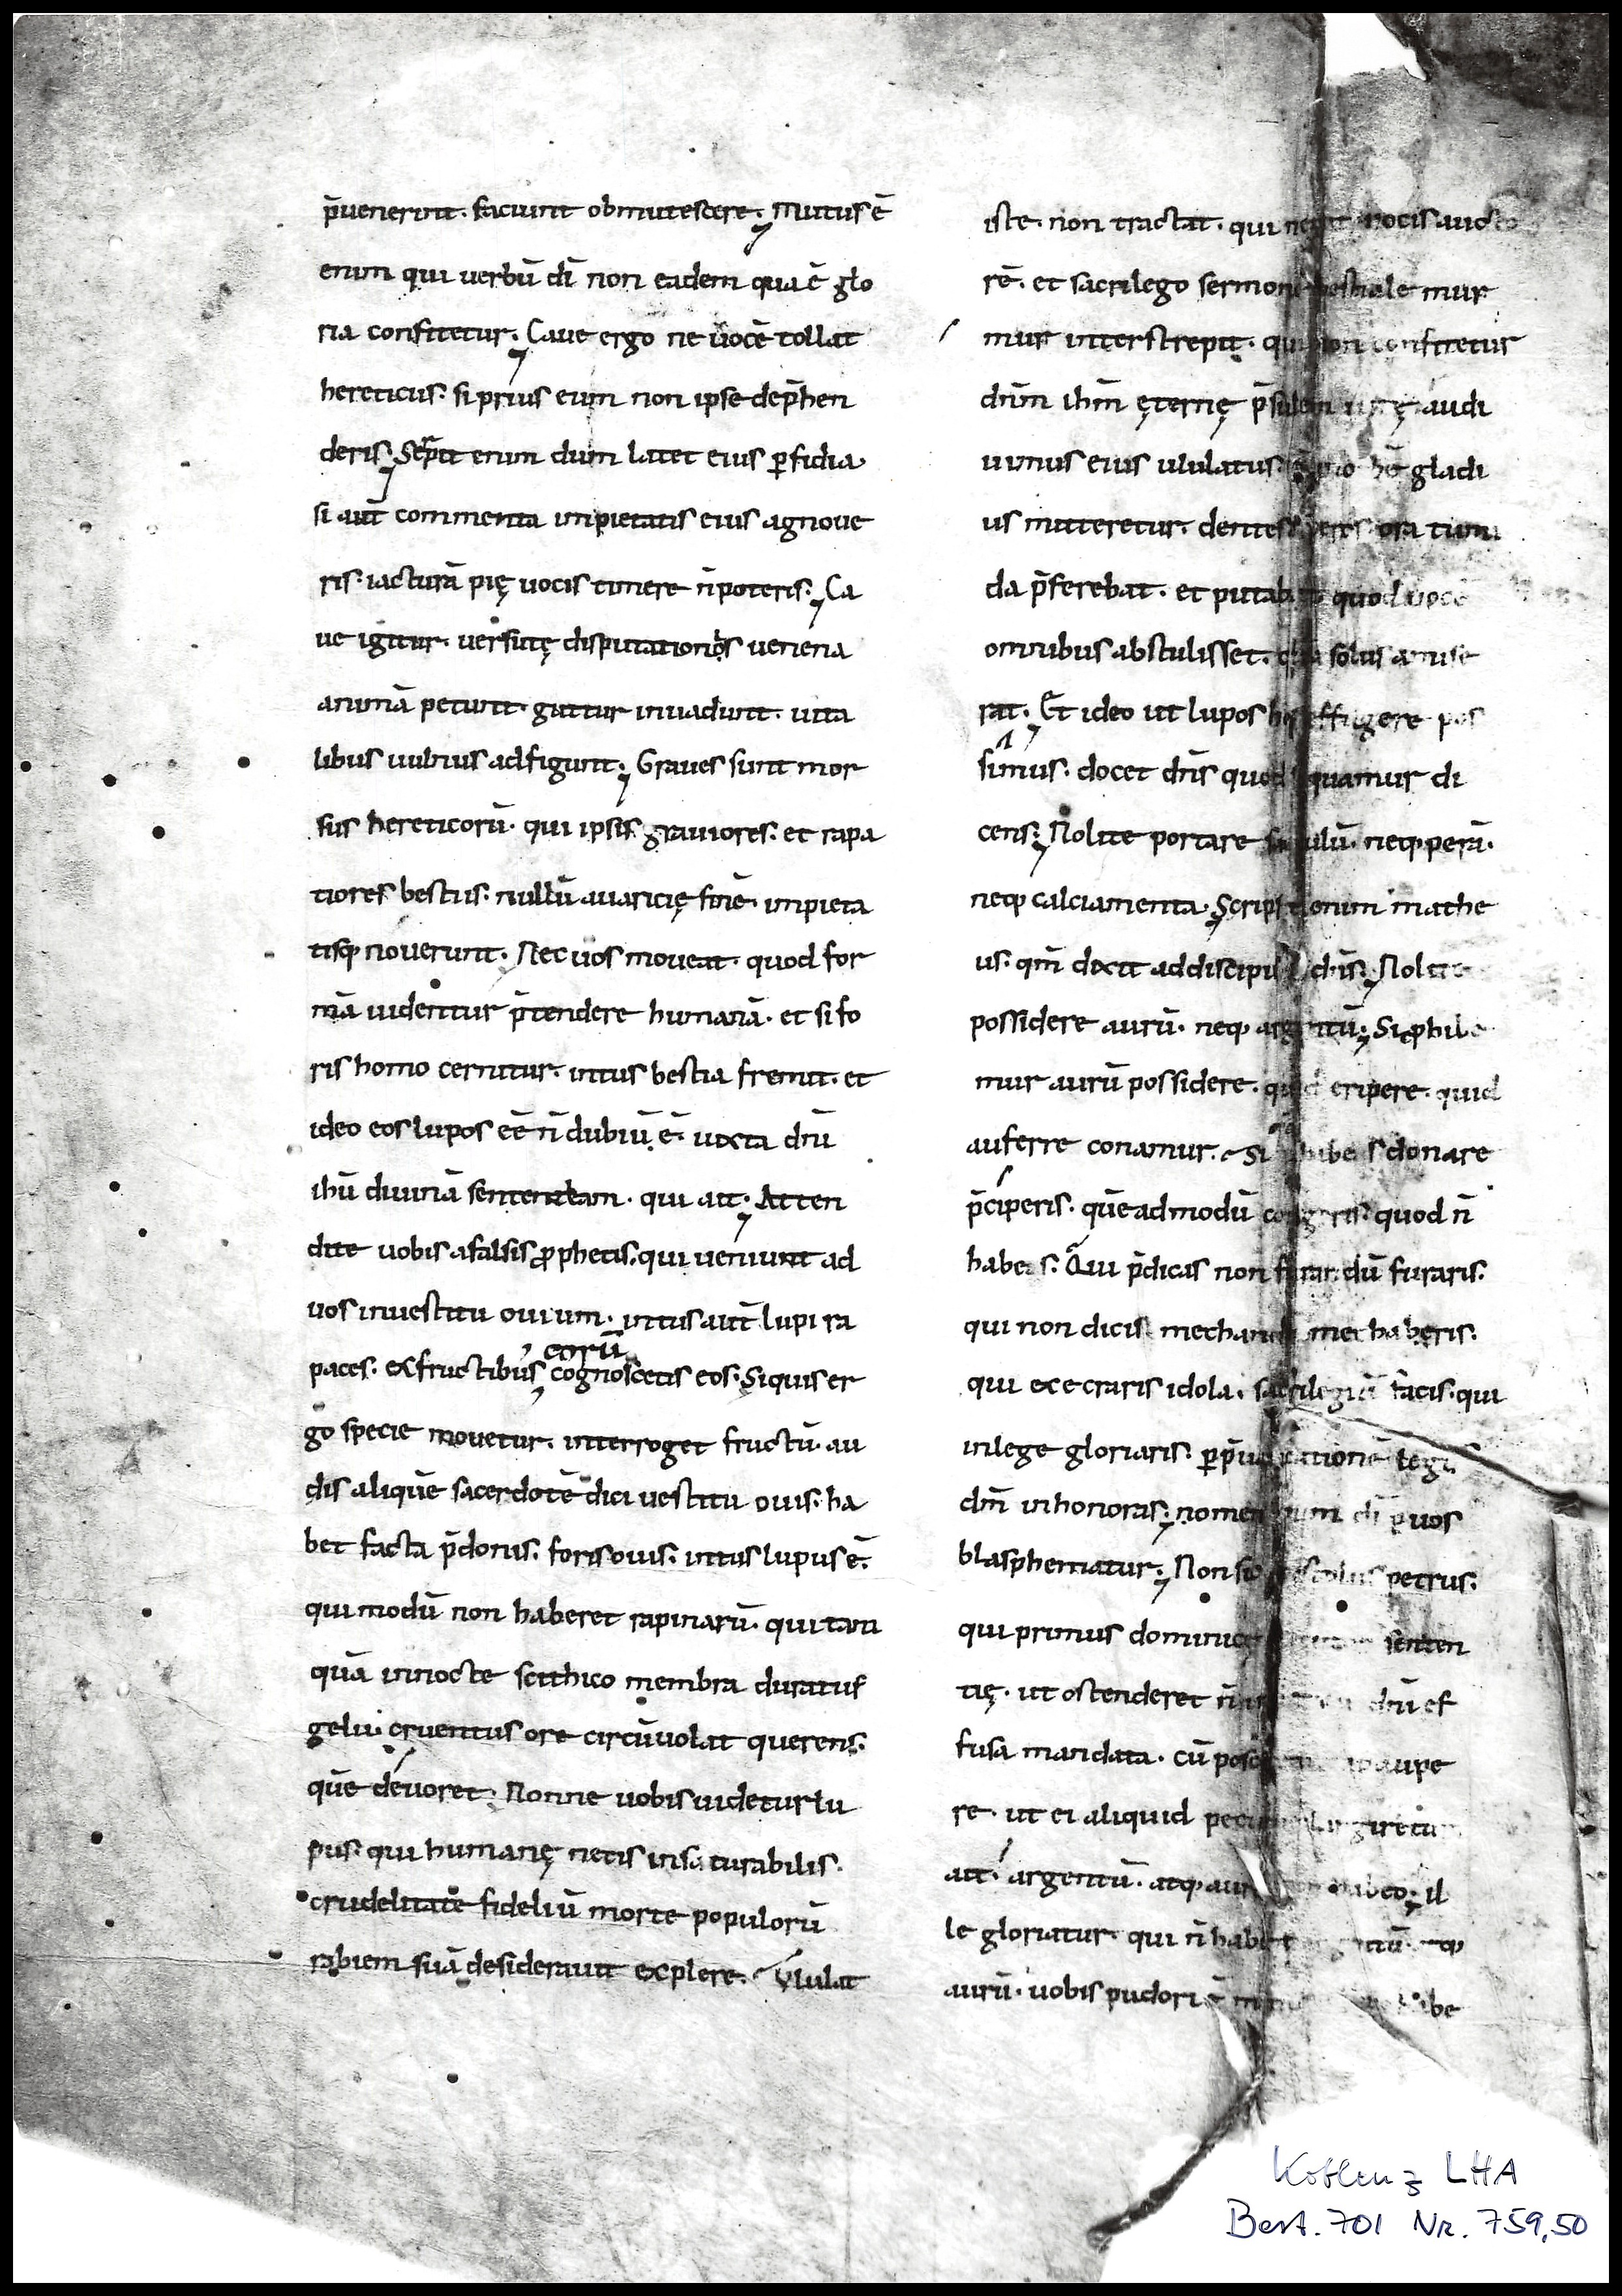 p̄uenerint. faciunt obmutescere. Mutus ē
enim qui uerbū dī non eadem qua ē glo
ria confitetur. Caue ergo ne uocē tollat
hereticus. si prius eum non ipse dep̄hen
deris. Serpit enim dum latet eius ꝑfidia
si aut̄ commenta impietatis eius agnoue
ris. iacturā pię uocis timere n̄ poteris. Ca
ue igitur. uersutę disputationis uenena
animā petunt. guttur inuadunt. uita
libus uulnus adfigunt. Graues sunt mor
sus hereticorū. qui ipsis grauiores. et rapa
tiores bestiis. nullū auaricię finē. impieta
tisq. nouerunt. Nec uos moueat. quod for
mā uidentur p̄tendere humanā. et si fo
ris homo cernitur. intus bestia fremit. et
ideo eos lupos eē n̄ dubiū ē. iuxta dn̄i
ihū diuinā sententiam. qui ait. Atten
dite uobis a falsis ꝓphetis. qui ueniunt ad
uos in uestitu ouium. intus aut̄ lupi ra
paces. ex fructibus cognoscetis eos. Si quis er
eorū
go specie mouetur. interroget fructū. au
dis aliquē sacerdotē dici uestitu ouis. ha
bet facta p̄donis. foris ouis. intus lupus ē.
qui modū non haberet rapinarū. qui tan
quā in nocte scithico membra duratus
gelu. cruentus ore circūuolat querens.
quē deuoret. Nonne uobis uidetur lu
pus. qui humanę necis insaturabilis.
crudelitate fideliū morte populorū
rabiem suā desiderauit explere. Ululat
iste. non tractat. qui negat uocis aucto
rē. et sacrilego sermoni bestiale mur
mur interstrepit. qui non confitetur
dn̄m ihm̄ ęternę p̄sulem audi
uimus eius ululatus hē gladi
us mitteretur. dentes ora tumi
da p̄ferebat. et putabat quod uocē
omnibus abstulisset. quā solus amise
rat. Et ideo ut lupos hos effugere pos
simus. docet dn̄s quod sequamur di
cens. Nolite portare sacculū. neq. perā.
neq. calciamenta. Scriptū enim mathe
us. qm̄ dixit ad discipulos dn̄s. Nolite
possidere aurū. neq. argentū. Si phibe
mur aurū possidere. quid eripere. quid
auferre conamur. Si habes donare
p̄ciperis. quēadmodū congeris quod n̄
habes. Qui p̄dicas non furari. dū furaris.
qui non dicis mechandū mechaberis.
qui execraris idola. sacrilegiū facis. qui
in lege gloriaris. ꝑ p̄uaricationē legis
dm̄ inhonoras. nomen enim dī ꝑ uos
blasphematur. Non sic apostolus petrus.
qui primus dominicę senten
tię. ut ostenderet n̄ in dn̄i ef
fusa mandata. cū posceretur a paupe
re. ut ei aliquid pecunię largiretur
ait. argentū. atq. aurū non habeo. il
le gloriatur. qui n̄ habet argentū. atq.
aurū. uobis pudori ē habe
Koblenz LHA
Best. 701 Nr. 759,50